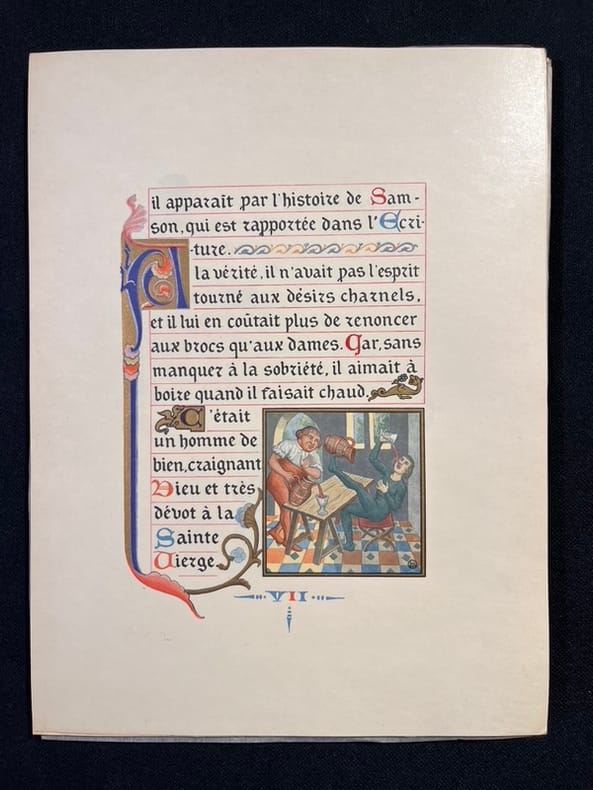 il apparaît par l'histoire de Sam-
son, qui est rapportée dans l'Ecri-
-ture.
A la vérité, il n'avait pas l'esprit
tourné aux désirs charnels,
et il lui en coûtait plus de renoncer
aux brocs qu'aux dames. Car, sans
manquer à la sobriété, il aimait à
boire quand il faisait chaud.
C'était
un homme de
bien, craignant
Dieu et très
dévot à la
Sainte
Vierge.
VII